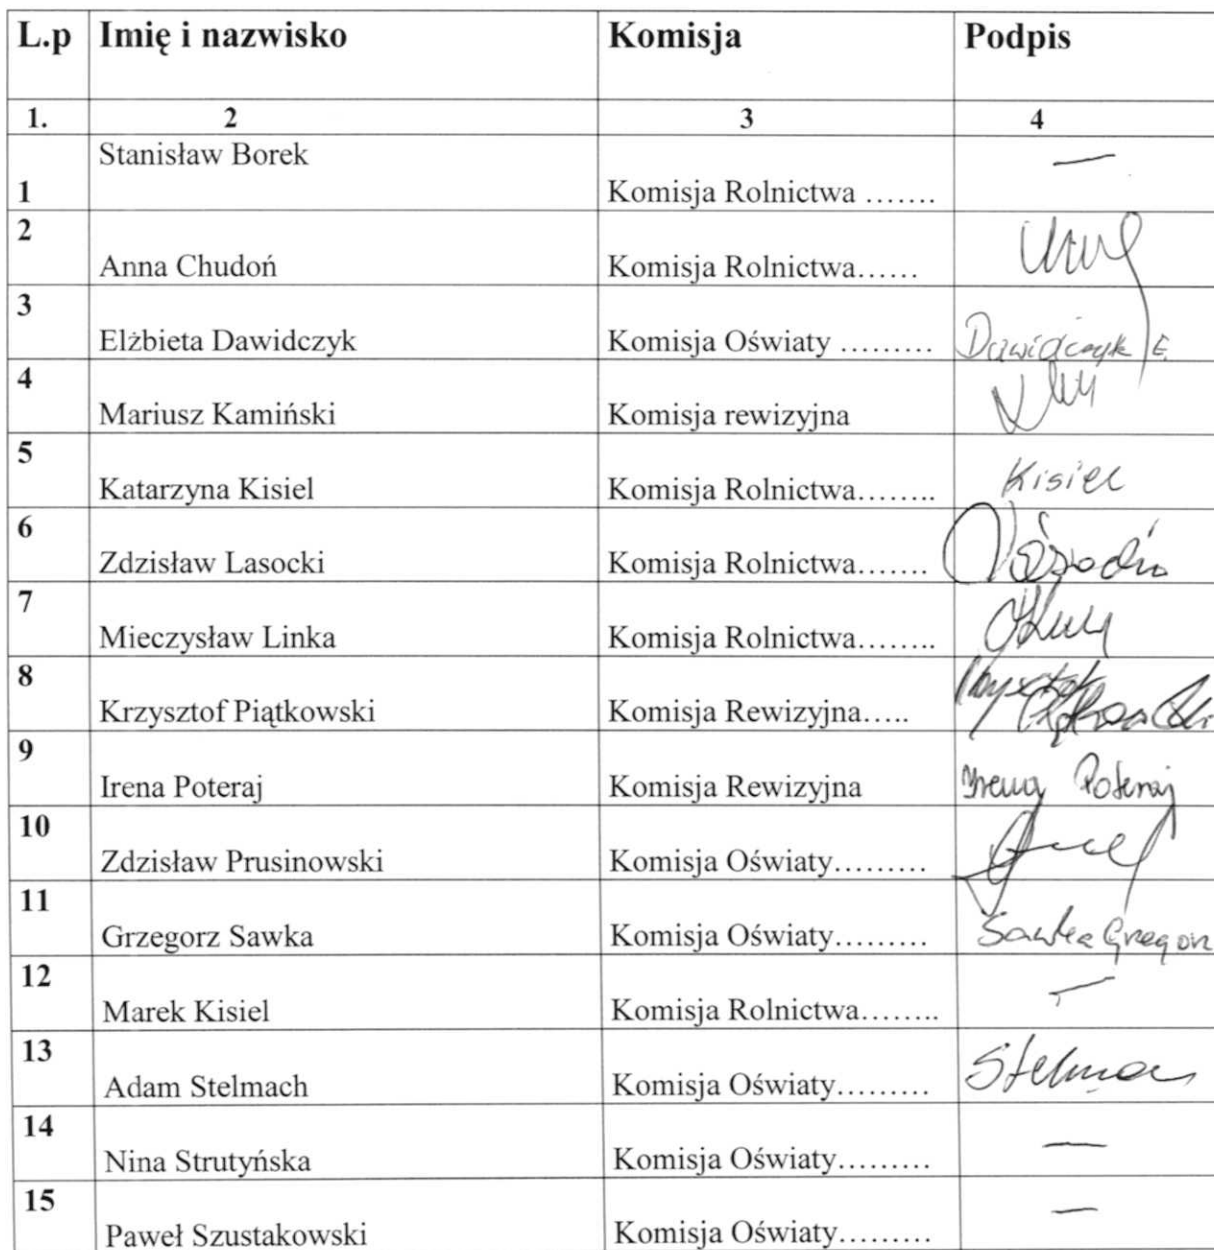 L.p Imię i nazwisko Komisja Podpis
1. 2 3 4
Stanisław Borek —
1 Komisja Rolnictwa …….
2
Anna Chudoń Komisja Rolnictwa……
3
Elżbieta Dawidczyk Komisja Oświaty ……… Dawidczyk E.
4
Mariusz Kamiński Komisja rewizyjna
5
Katarzyna Kisiel Komisja Rolnictwa…….. Kisiel
6
Zdzisław Lasocki Komisja Rolnictwa…….
7
Mieczysław Linka Komisja Rolnictwa……..
8
Krzysztof Piątkowski Komisja Rewizyjna….. Krzysztof Piątkowski
9
Irena Poteraj Komisja Rewizyjna Irena Poteraj
10
Zdzisław Prusinowski Komisja Oświaty………
11
Grzegorz Sawka Komisja Oświaty……… Sawka Grzegorz
12 —
Marek Kisiel Komisja Rolnictwa……..
13
Adam Stelmach Komisja Oświaty……… Stelmach
14 —
Nina Strutyńska Komisja Oświaty………
15 —
Paweł Szustakowski Komisja Oświaty………